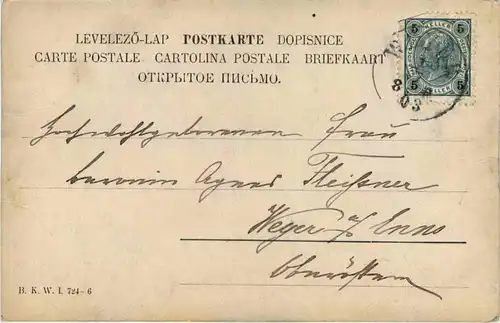 LEVELEZŐ-LAP POSTKARTE DOPISNICE
CARTE POSTALE. CARTOLINA POSTALE BRIEFKAART
ОТКРЫТОЕ ПИСЬМО.
5 HELLER 5
5 5
8
03
Hochwohlgeborenen Frau
baronin Agnes Fleissner
Weyer a/ Enns
Oberösterr.
B. K. W. I. 724-6